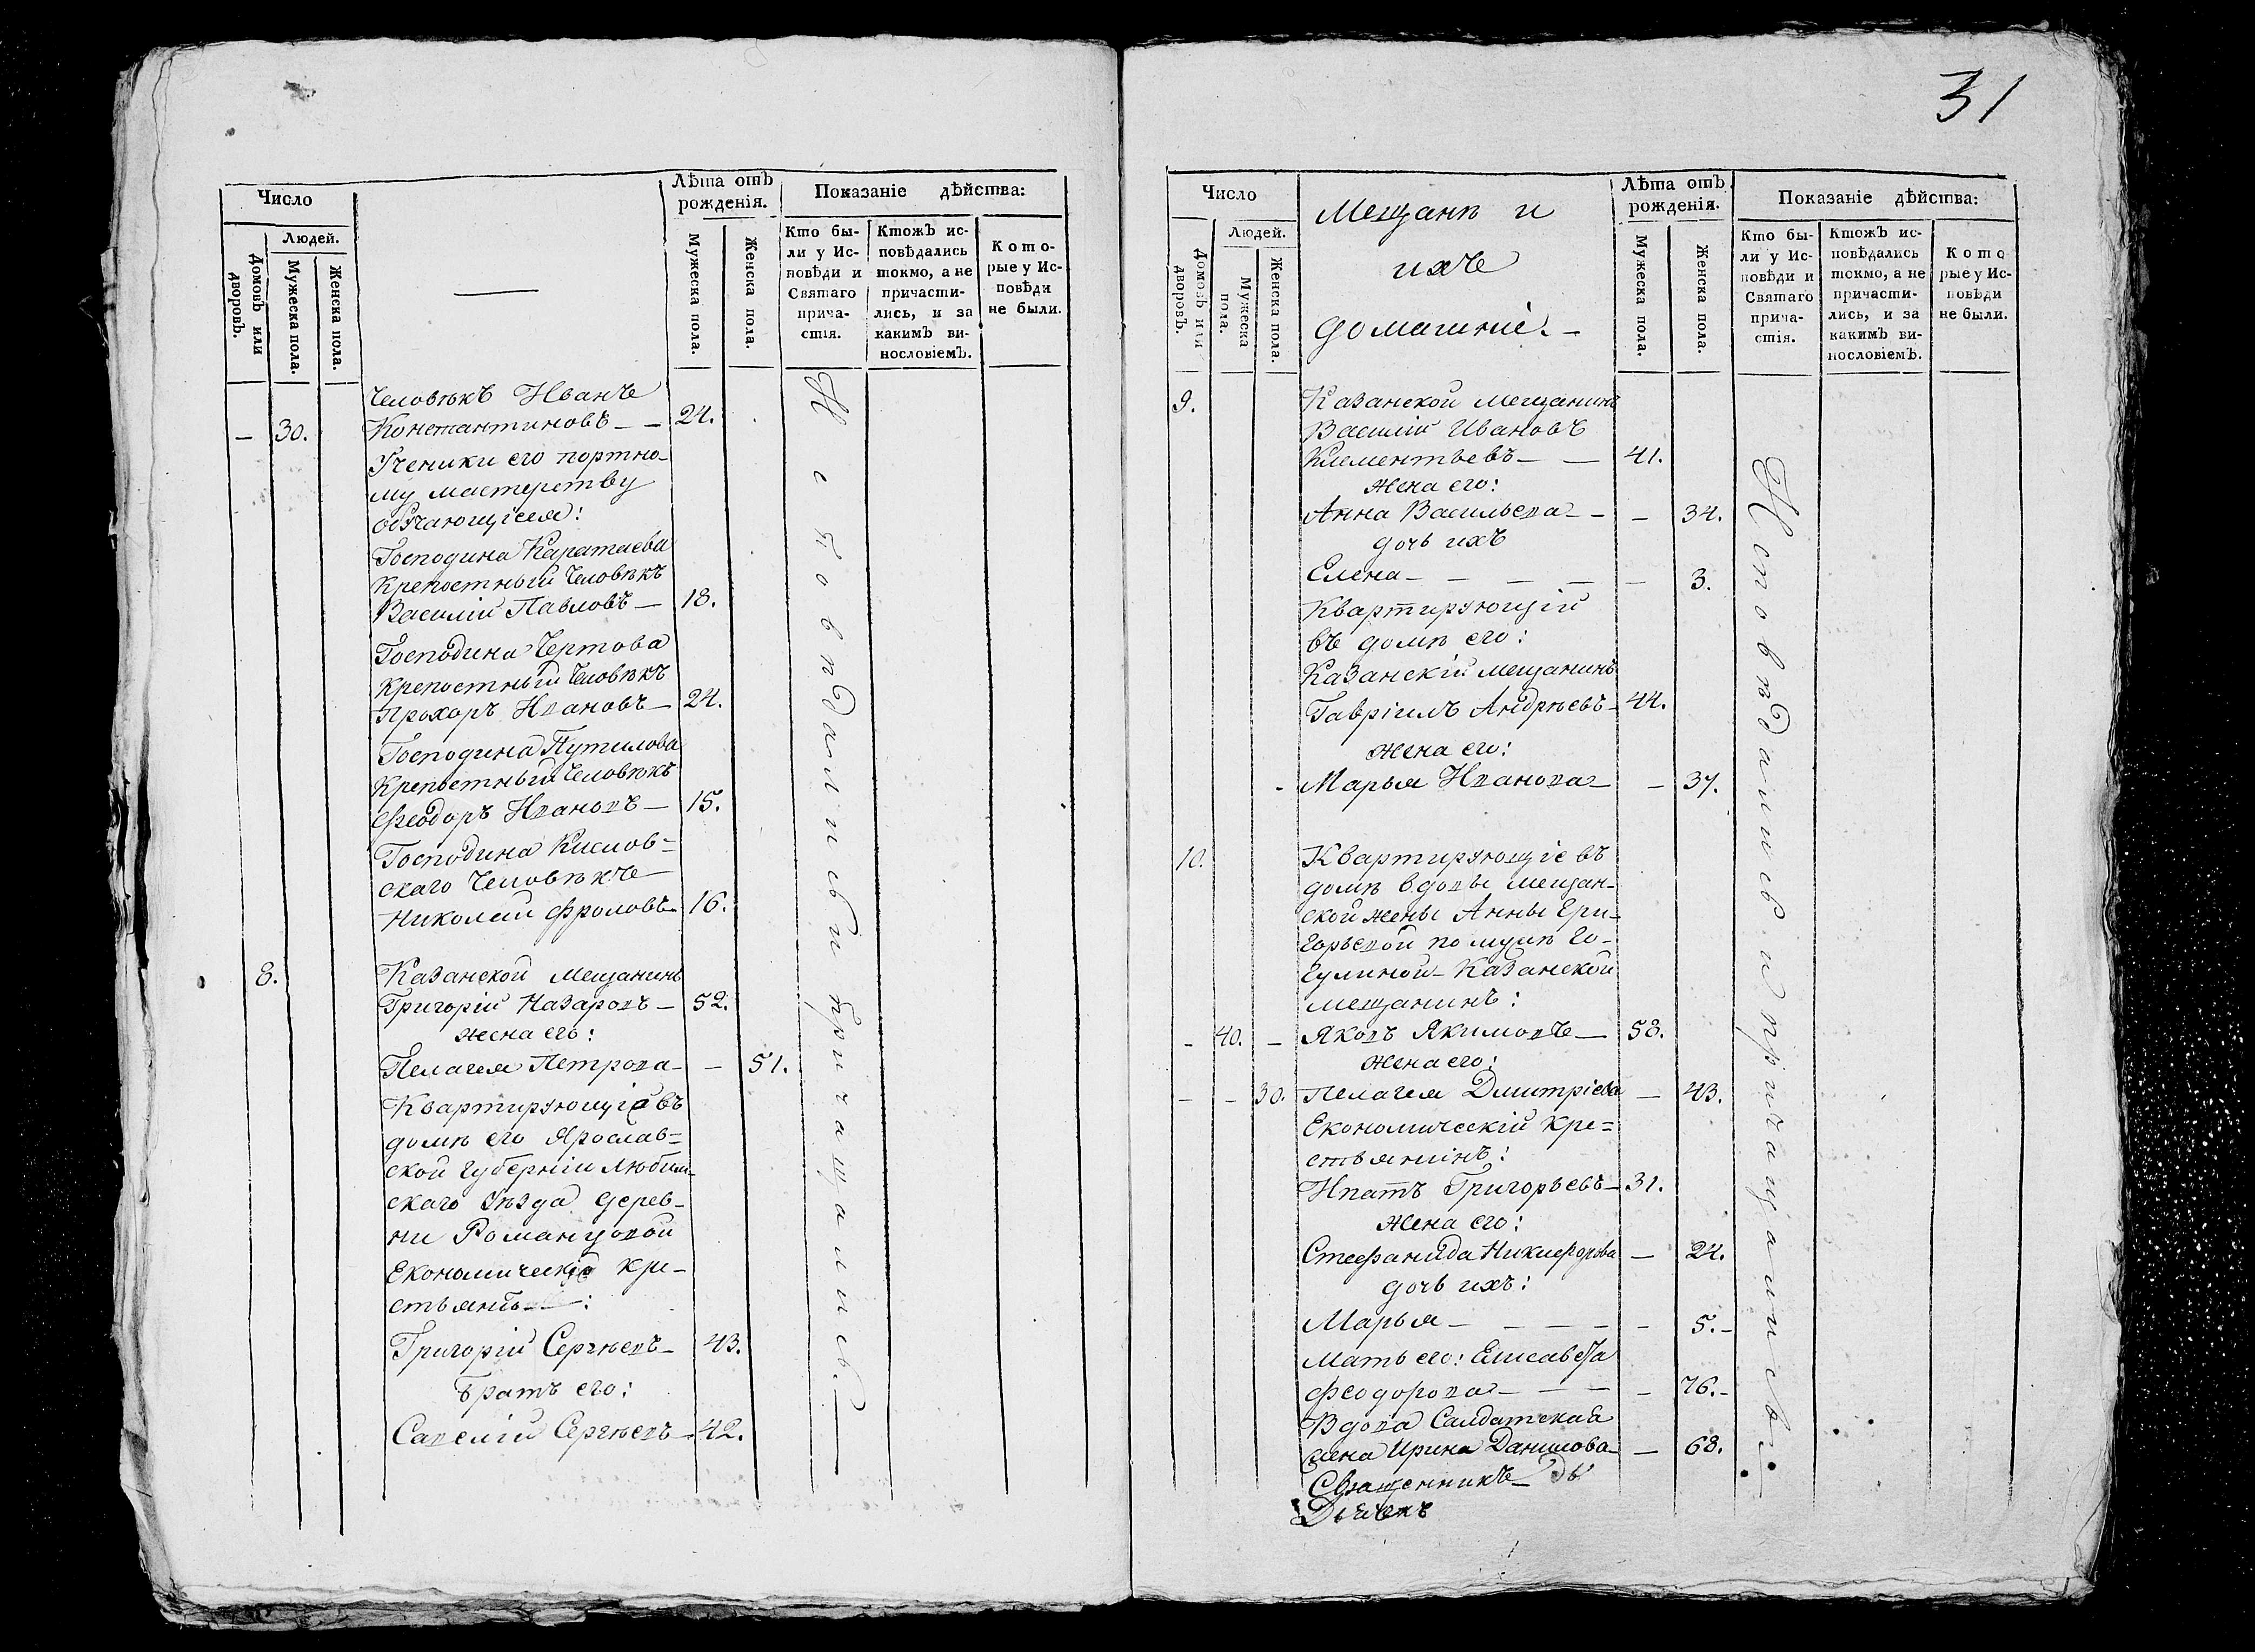 Число
Людей.
Домовъ или дворовъ.
Мужеска пола.
Женска пола.
Лѣта отъ рожденія.
Мужеска пола.
Женска пола.
Показаніе дѣйства:
Кто бы-
ли у Ис-
повѣди и
Святаго
прича-
стія.
Ктожъ ис-
повѣдались
токмо, а не
причасти-
лись, и за
какимъ ви-
нословіемъ.
Кото-
рые у Ис-
повѣди
не были.
Человѣкъ Иванъ
— 30. Константиновъ — — 24.
Ученики его портно-
му мастерству
обучающіеся:
Господина Каратаева
Крепостный человѣкъ
Василій Павловъ — 18.
Господина Чертова
Крепостный человѣкъ
Прохоръ Ивановъ — 24.
Господина Путилова
Крепостный человѣкъ
Феодоръ Ивановъ — 15.
Господина Кислов=
скаго Человѣкъ
Николай Фроловъ — 16.
8. Казанской Мещанинъ
Григорій Назаровъ — 52.
жена его:
Пелагея Петрова — — 51.
Квартирующіе въ
домѣ его Ярослав=
ской губерніи Любим-
скаго уѣзда дерев-
ни Романцовой
Економическіе кре-
стьянѣ:
Григорій Сергѣевъ — 43.
братъ его:
Савелій Сергѣевъ — 42.
Исповѣдались и причащались.
31
Число
Людей.
Домовъ или дворовъ.
Мужеска пола.
Женска пола.
Мещанѣ и
ихъ
домашніе. —
Лѣта отъ рожденія.
Мужеска пола.
Женска пола.
Показаніе дѣйства:
Кто бы-
ли у Ис-
повѣди и
Святаго
прича-
стія.
Ктожъ ис-
повѣдались
токмо, а не
причасти-
лись, и за
какимъ ви-
нословіемъ.
Кото
рые у Ис-
повѣди
не были.
9. Казанской мещанинъ
Василій Ивановъ
Клементьевъ — — 41.
жена его:
Анна Васильева — — — 34.
дочь ихъ
Елена — — — — — 3.
Квартирующій
въ домѣ его:
Казанскій мещанинъ
Гавріилъ Андрѣевъ — 44.
жена его:
Марья Иванова — — 37.
10. Квартирующіе въ
домѣ вдовы мещан-
ской жены Анны Гри-
горьевой по мужѣ Го-
гулиной Казанской
мещанинъ:
— 40. — Яковъ Якимовъ — 58.
жена его:
— — 30. Пелагея Дмитріева — 43.
Економическій кре=
стьянинъ:
Ипатъ Григорьевъ — 31.
жена его:
Стефанида Никифорова — 24.
дочь ихъ:
Марья — — — — — 5. —
Мать его: Елисавета
Феодорова — — — — 76. —
Вдова Салдатская
жена Ирина Данилова — — 68.
Священникъ
Исповѣдались и причащались.